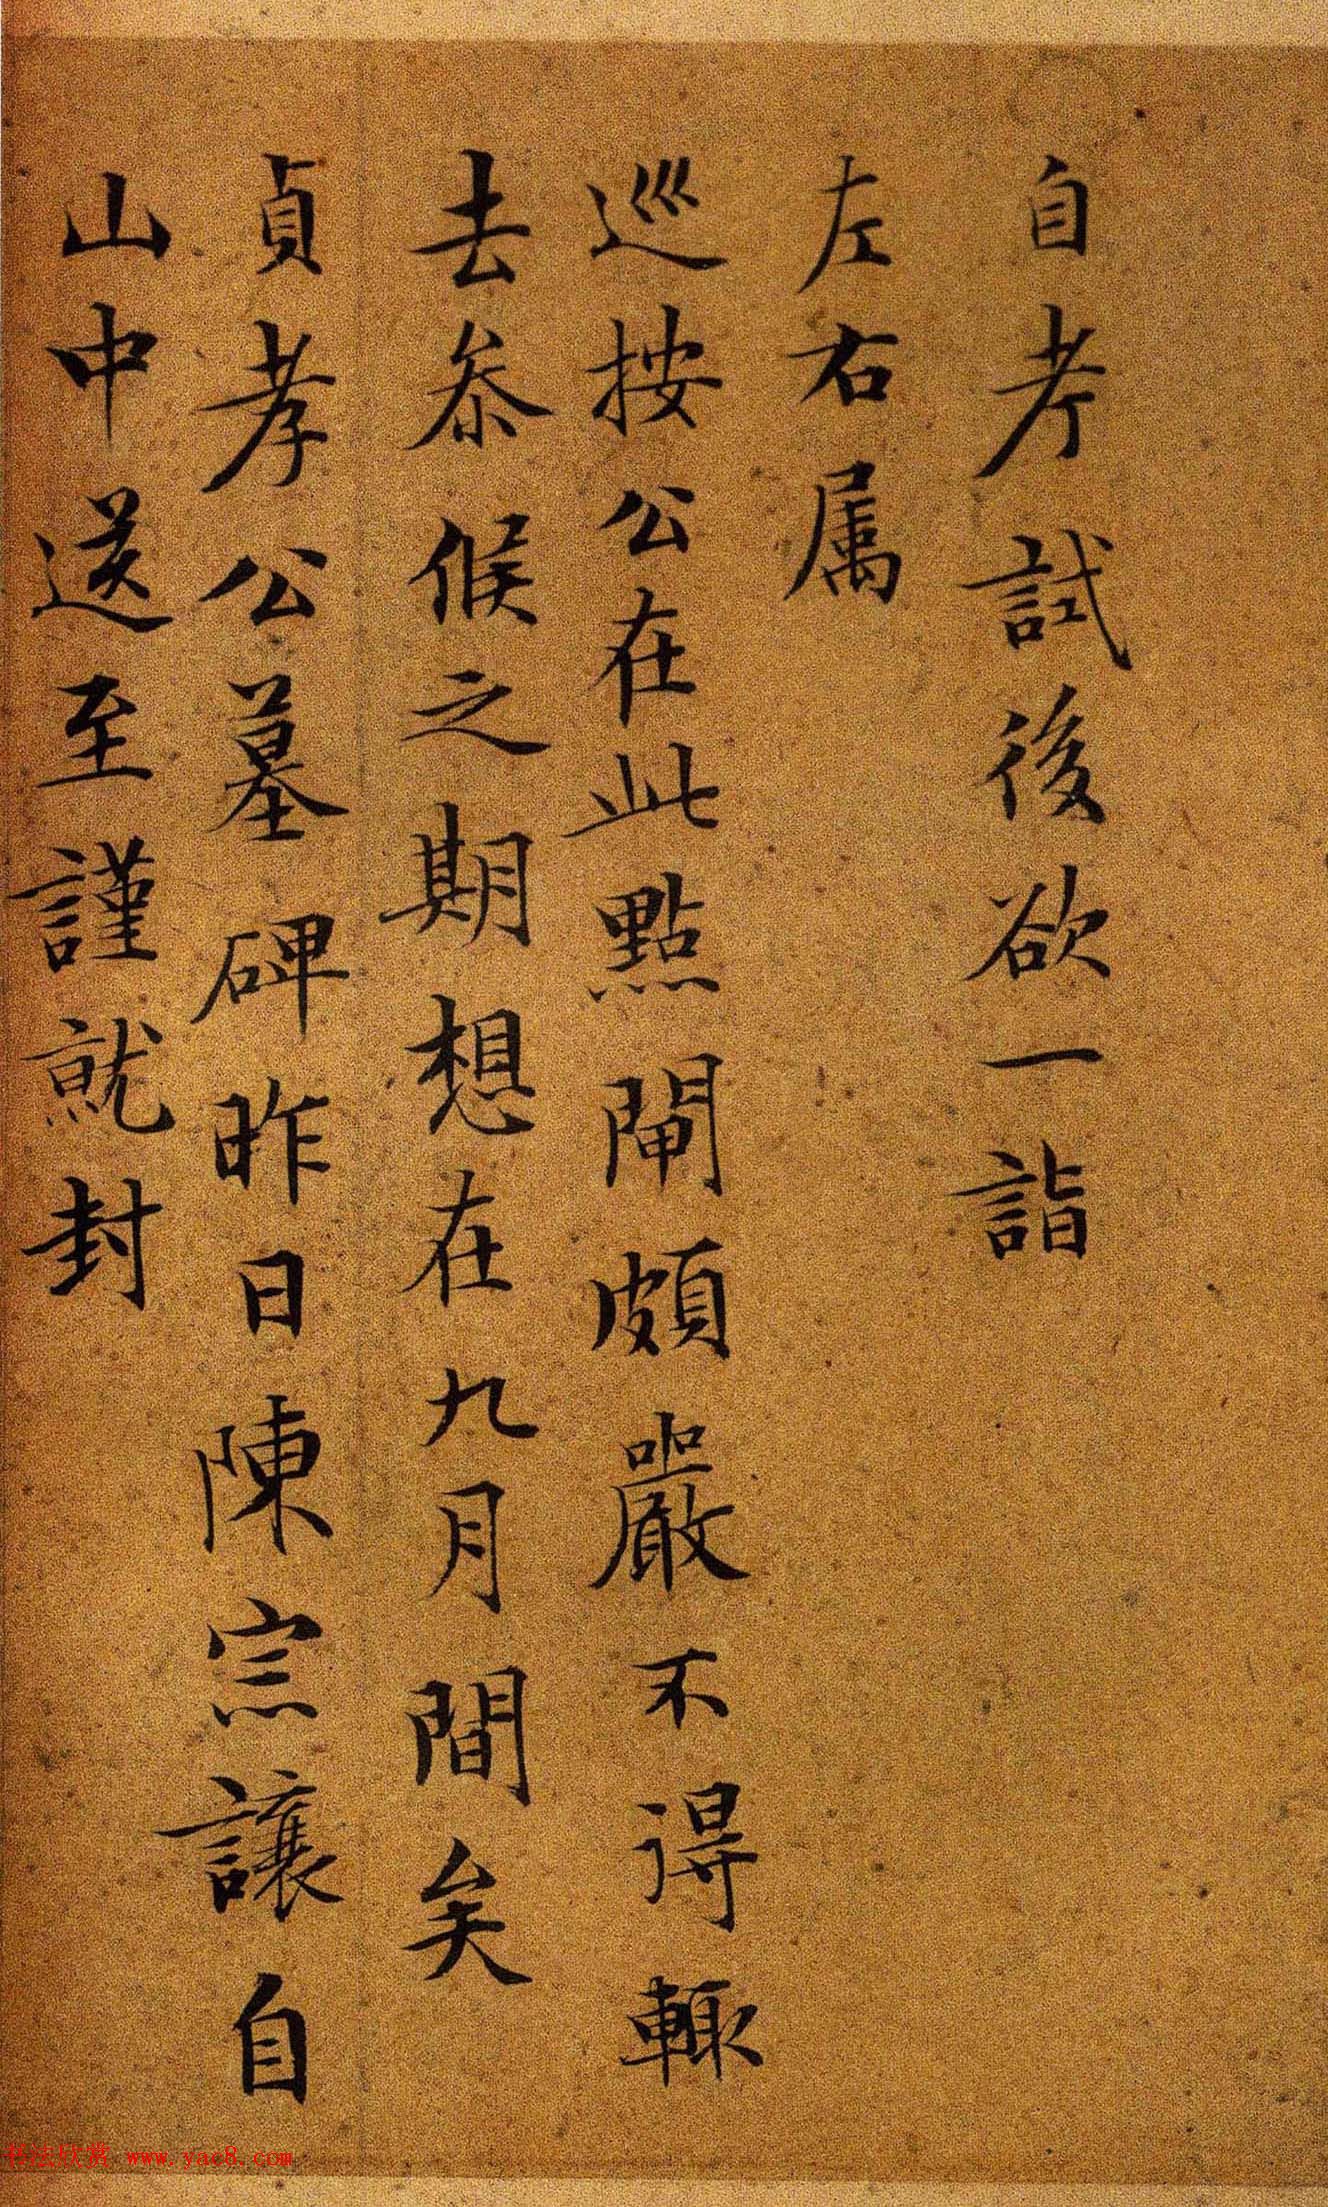 自考試後欲一詣
左右属
巡按公在此點閘頗嚴不得輙
去叅候之期想在九月間矣
貞孝公墓碑昨日陳宗讓自
山中送至謹就封
书法欣赏 www.yac8.com